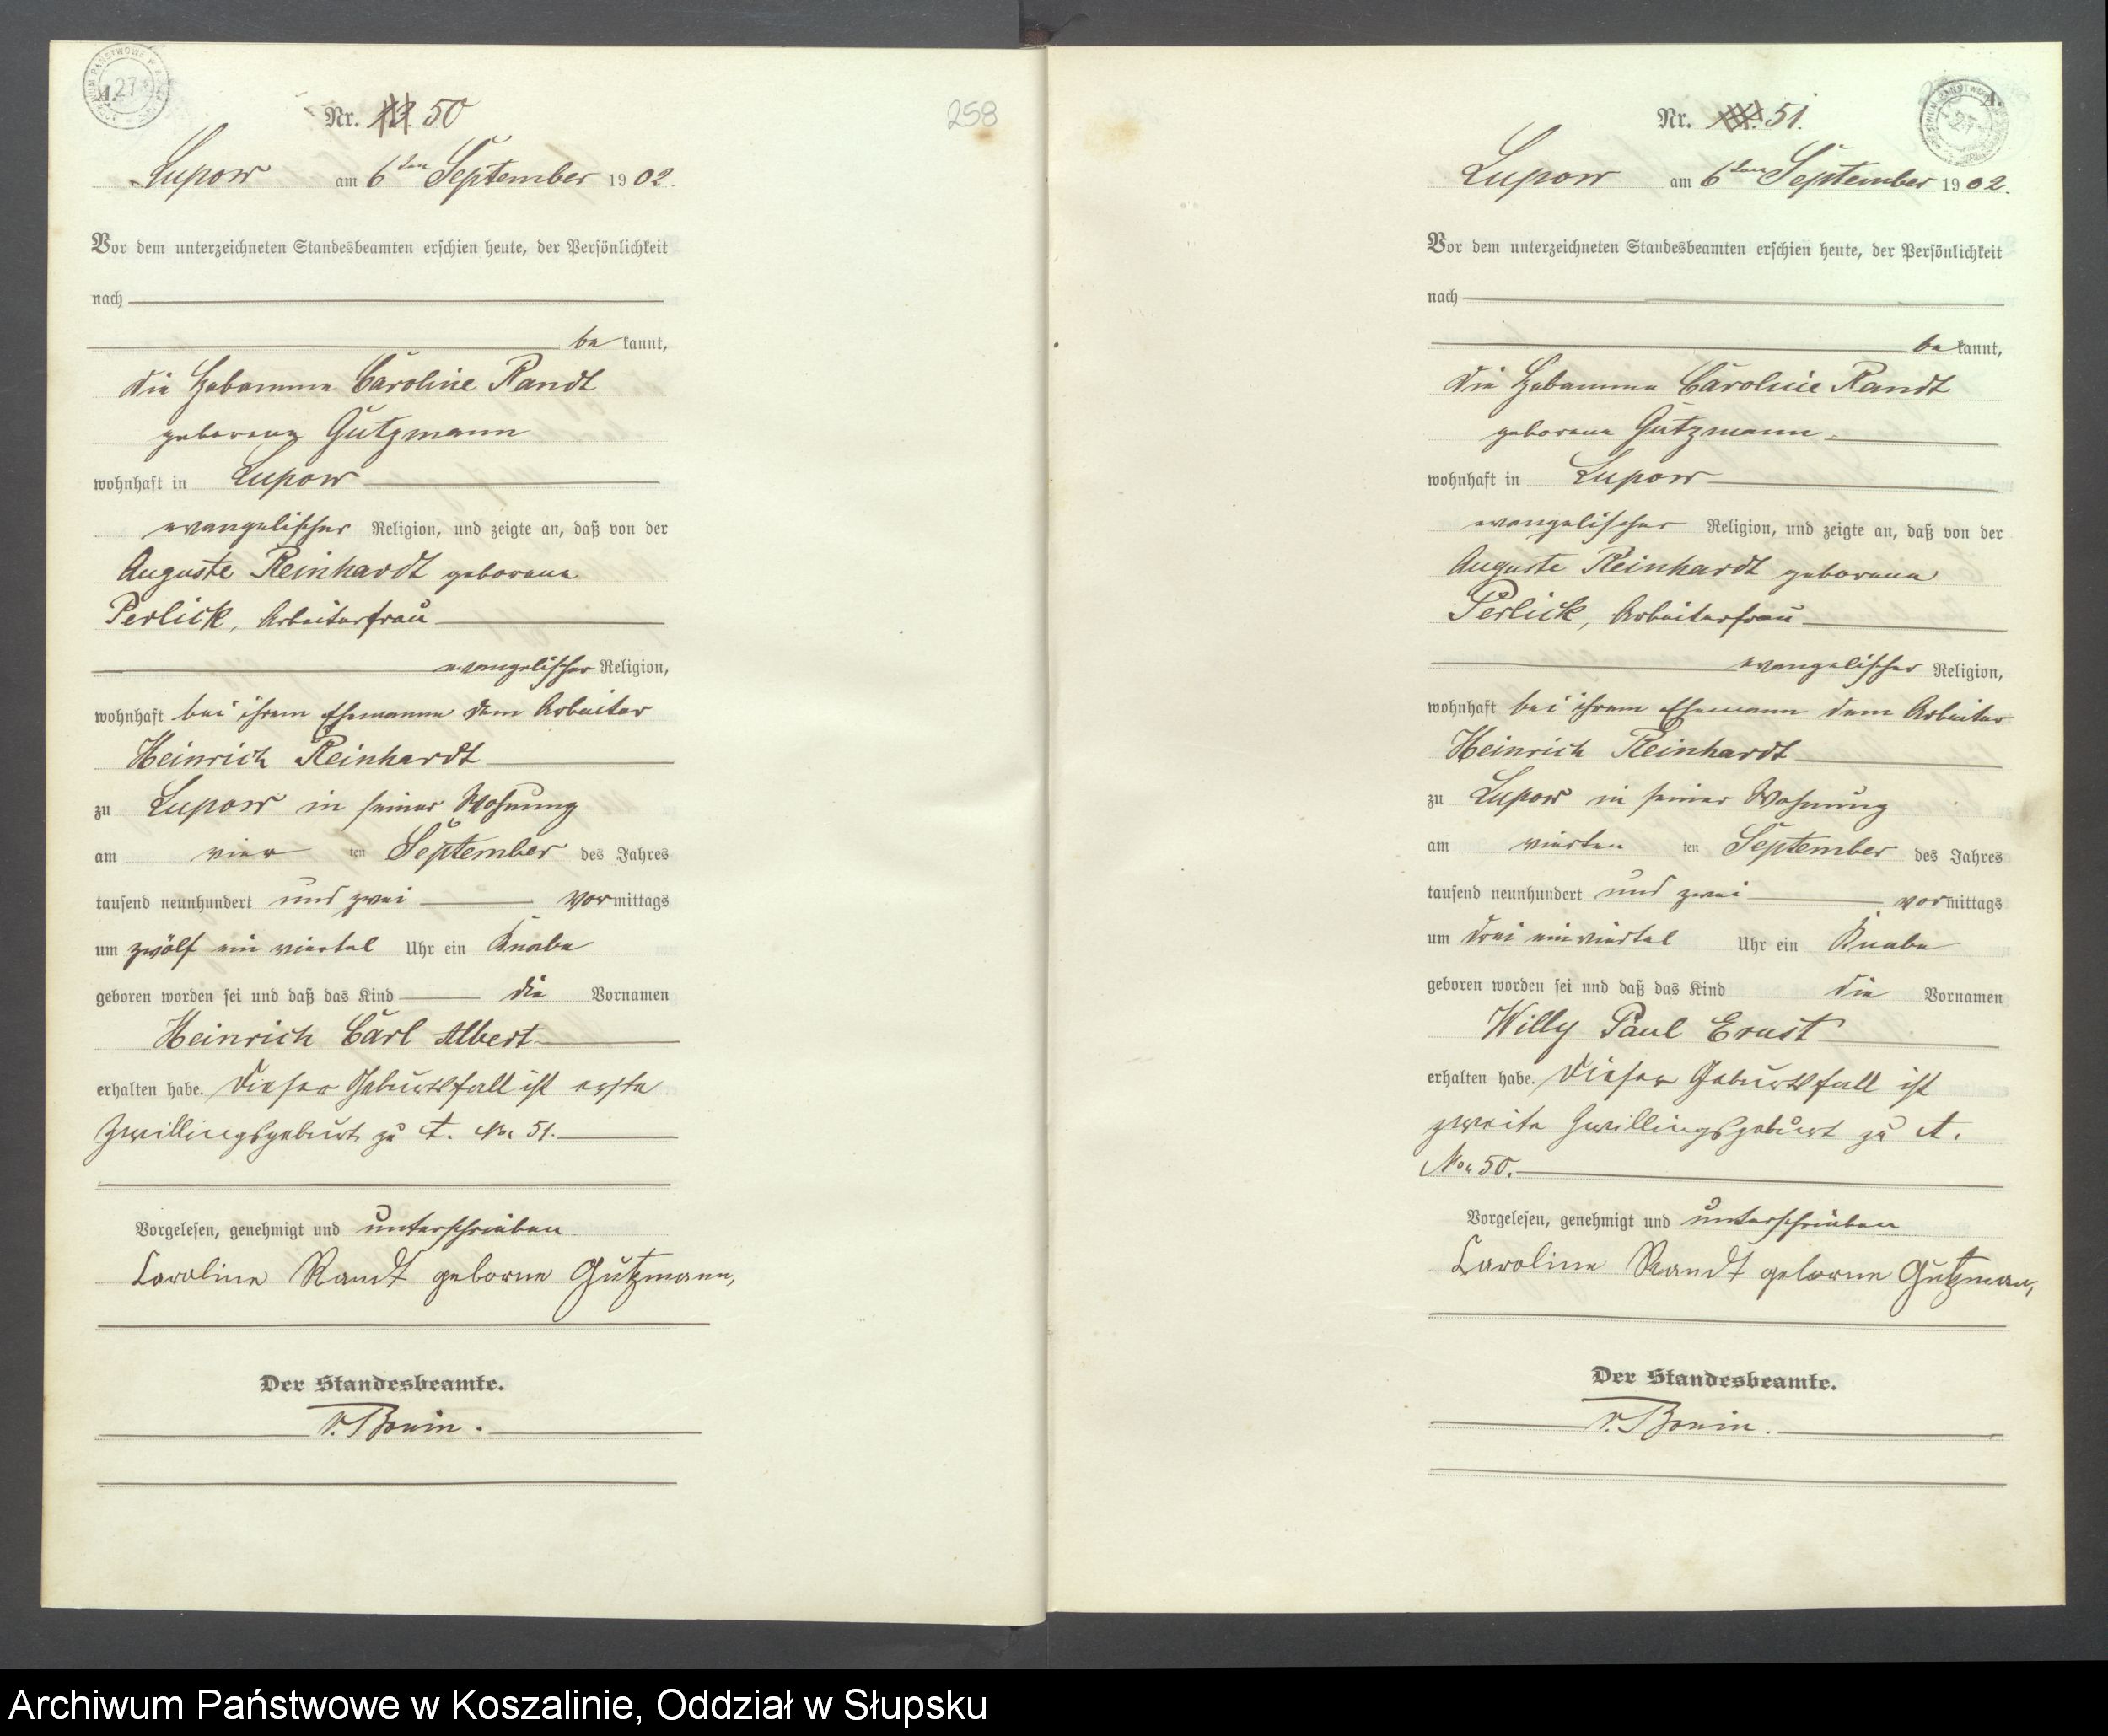 A.
27
Nr. 50
Lupow am 6ten September 1902.
Vor dem unterzeichneten Standesbeamten erschien heute, der Persönlichkeit
nach
be kannt,
die Hebamme Caroline Randt
geborene Gutzmann
wohnhaft in Lupow
evangelischer Religion, und zeigte an, daß von der
Auguste Reinhardt geborene
Perlick, Arbeiterfrau
evangelischer Religion,
wohnhaft bei ihrem Ehemanne dem Arbeiter
Heinrich Reinhardt
zu Lupow in seiner Wohnung
am vier ten September des Jahres
tausend neunhundert und zwei Vormittags
um zwölf ein viertel Uhr ein Knabe
geboren worden sei und daß das Kind die Vornamen
Heinrich Carl Albert
erhalten habe. Dieser Geburtsfall ist erste
Zwillingsgeburt zu A. No. 51.
Vorgelesen, genehmigt und unterschrieben
Caroline Randt geborne Gutzmann,
Der Standesbeamte.
v. Bonin.
258
A.
27
Nr. 51.
Lupow am 6ten September 1902.
Vor dem unterzeichneten Standesbeamten erschien heute, der Persönlichkeit
nach
be kannt,
die Hebamme Caroline Randt
geborene Gutzmann.
wohnhaft in Lupow
evangelischer Religion, und zeigte an, daß von der
Auguste Reinhardt geborene
Perlick, Arbeiterfrau
evangelischer Religion,
wohnhaft bei ihrem Ehemann dem Arbeiter
Heinrich Reinhardt
zu Lupow in seiner Wohnung
am vierten ten September des Jahres
tausend neunhundert und zwei vormittags
um drei einviertel Uhr ein Knabe
geboren worden sei und daß das Kind die Vornamen
Willy Paul Ernst
erhalten habe. Dieser Geburtsfall ist
zweite Zwillingsgeburt zu A.
No. 50.
Vorgelesen, genehmigt und unterschrieben
Caroline Randt geborne Gutzman,
Der Standesbeamte.
v. Bonin.
Archiwum Państwowe w Koszalinie, Oddział w Słupsku